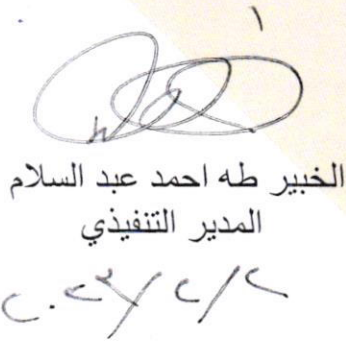 الخبير طه احمد عبد السلام
المدير التنفيذي
٢٠٢٣/٢/٢